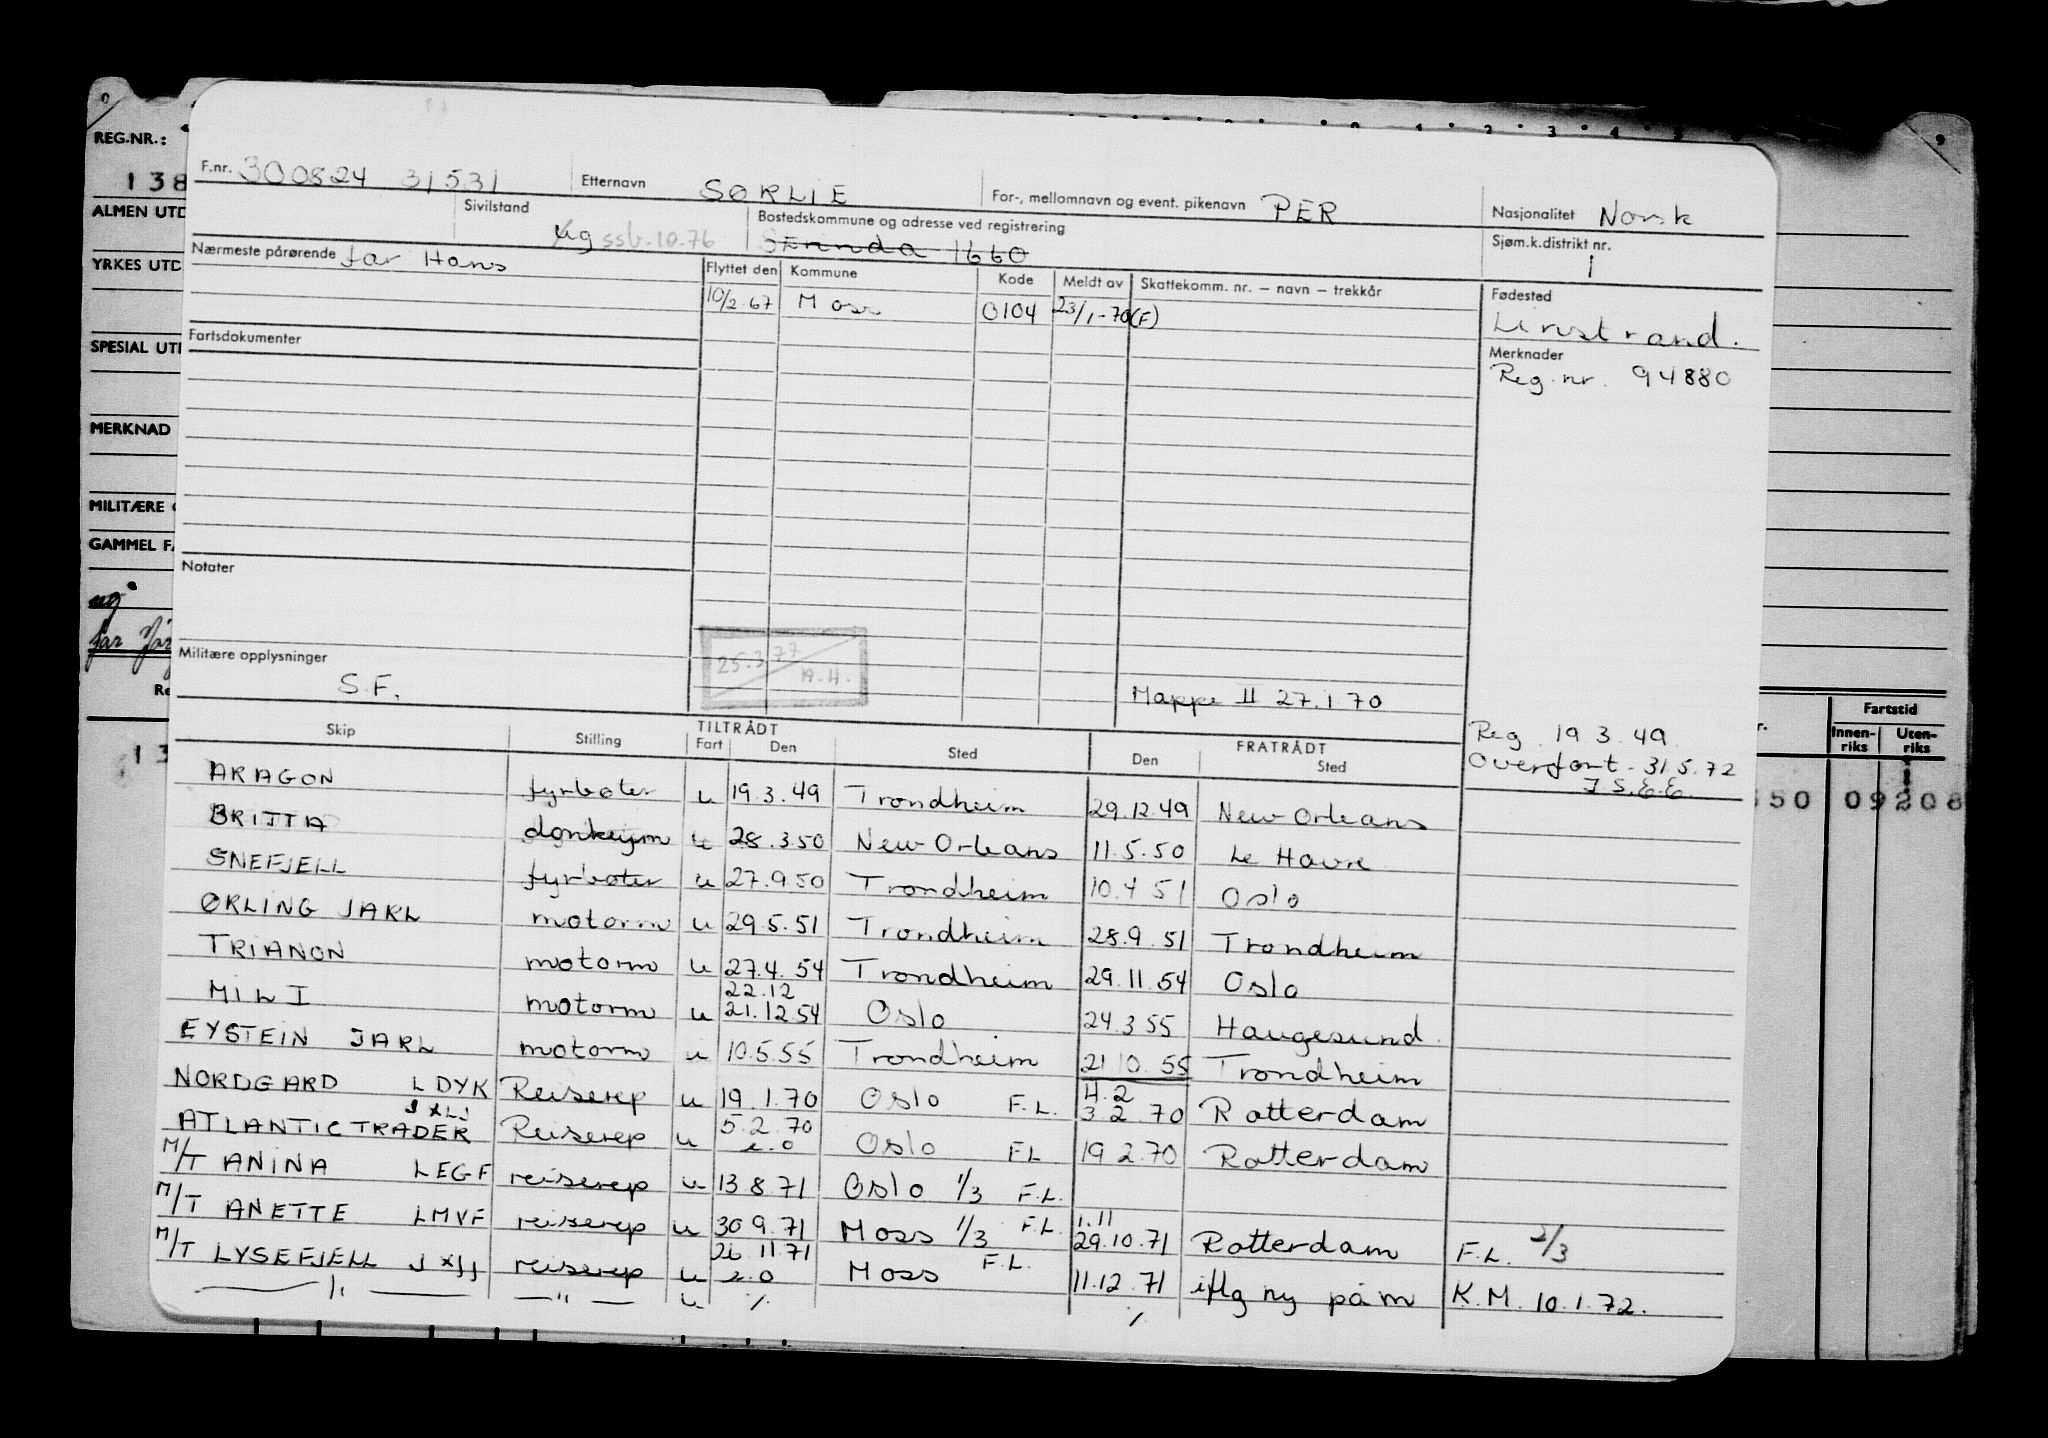 REG.NR.:
138
ALMEN UTD
YRKES UTD
SPESIAL UT
MERKNAD
MILITÆRE
GAMMEL FA
ug
far
F.nr. 300824 31531 Etternavn SØRLIE For-, mellomnavn og event. pikenavn PER Nasjonalitet Norsk
Sivilstand ug ssb.10.76 Bostedskommune og adresse ved registrering Strinda 1660 Sjøm.k.distrikt nr. 1
Nærmeste pårørende far Hans
Flyttet den Kommune Kode Meldt av Skattekomm. nr. — navn — trekkår Fødested
10/2.67 Moss 0104 23/1-70(F)
Leinstrand.
Fartsdokumenter
Merknader
Reg.nr. 94880
Notater
25.3.77
A.H.
Militære opplysninger
S.F.
Mappe II 27.1.70
Reg. 19.3.49
Overført. 31.5.72
Skip Stilling TILTRÅDT Fart Den Sted FRATRÅDT Den Sted
ARAGON fyrbøter u 19.3.49 Trondheim 29.12.49 New Orleans
BRITTA donkeym u 28.3.50 New Orleans 11.5.50 Le Havre
SNEFJELL fyrbøter u 27.9.50 Trondheim 10.4.51 Oslo
ØRLING JARL motorm u 29.5.51 Trondheim 28.9.51 Trondheim
TRIANON motorm u 27.4.54 Trondheim 29.11.54 Oslo
22.12
MILI motorm u 21.12.54 Oslo 24.3.55 Haugesund
EYSTEIN JARL motorm u 10.5.55 Trondheim 21.10.55 Trondheim
4.2
NORDGARD LDYK Reiserep u 19.1.70 Oslo F.L. 3.2.70 Rotterdam
JXLJ
ATLANTIC TRADER Reiserep u 5.2.70 Oslo FL 19.2.70 Rotterdam
M/T ANINA LEGF reiserep u 13.8.71 Oslo 1/3 F.L.
1.11
M/T ANETTE LMVF reiserep u 30.9.71 Moss 1/3 F.L. 29.10.71 Rotterdam F.L. 2/3
26.11.71
M/T LYSEFJELL JXJJ reiserep u Moss F.L. 11.12.71 iflg ny påm K.M. 10.1.72.
— " — — " — u
Fartstid
Innen-riks Uten-riks
550 09 208